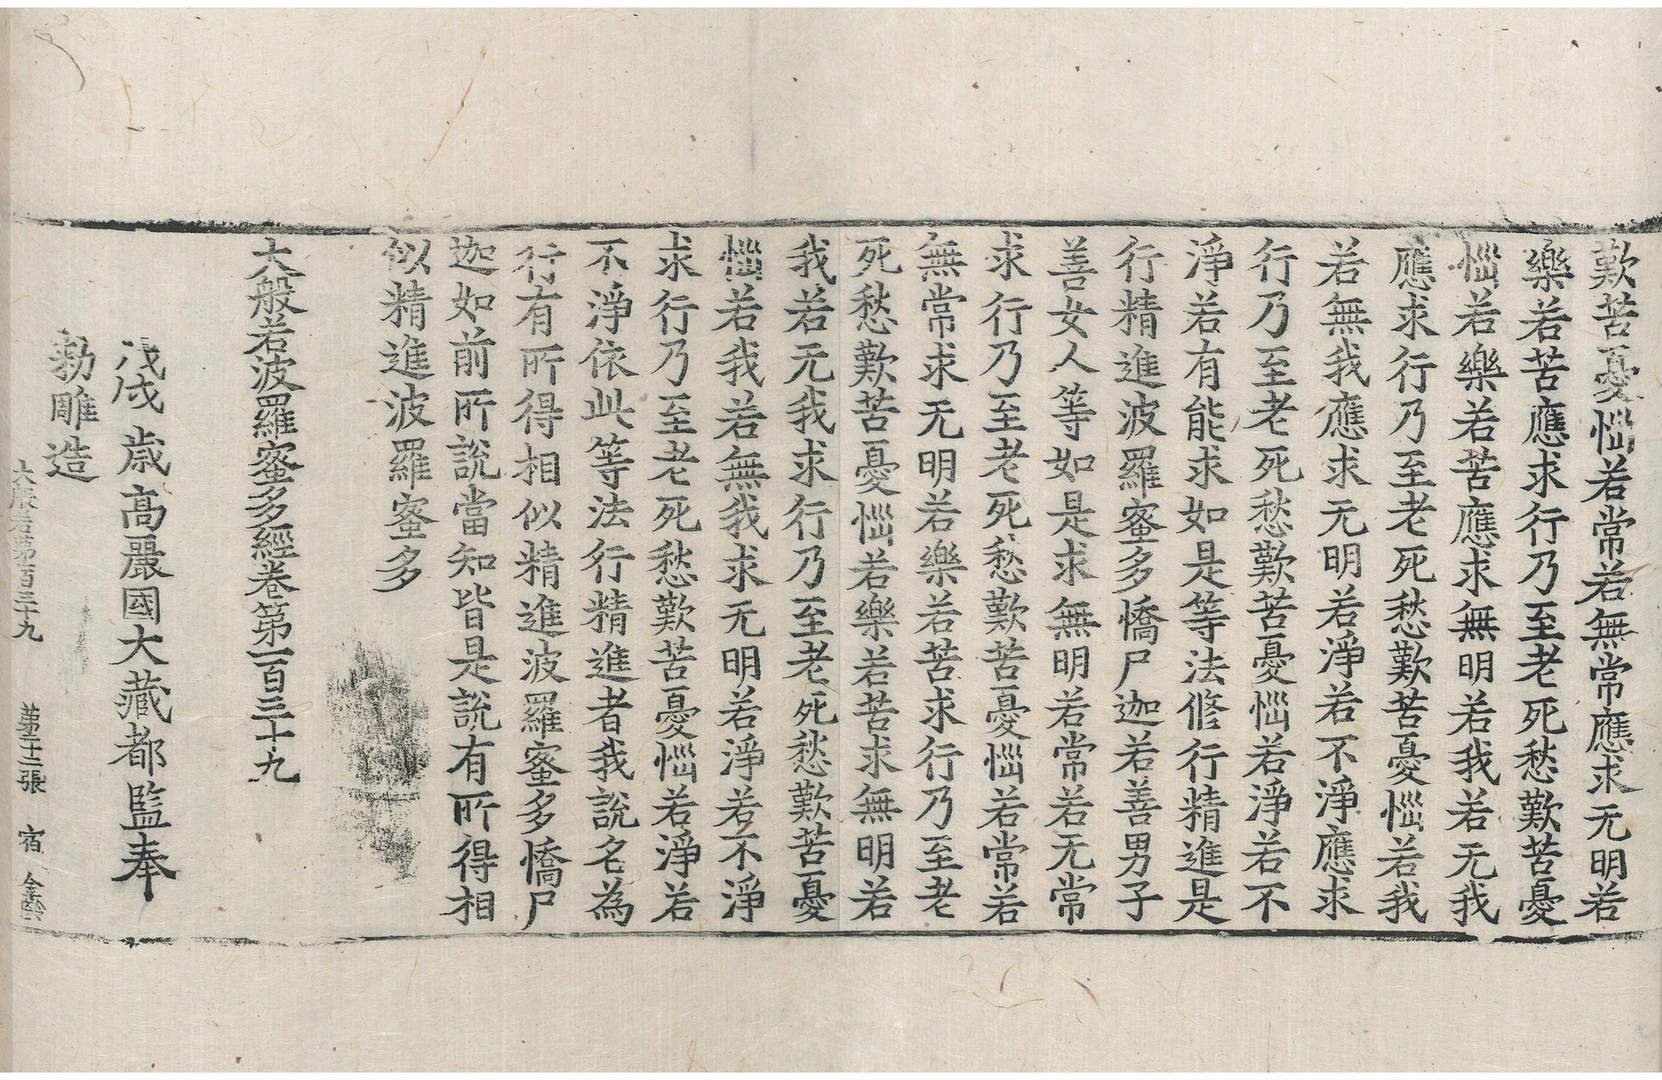 歎苦憂惱若常若無常應求无明若
樂若苦應求行乃至老死愁歎苦憂
惱若樂若苦應求無明若我若无我
應求行乃至老死愁歎苦憂惱若我
若無我應求无明若淨若不淨應求
行乃至老死愁歎苦憂惱若淨若不
淨若有能求如是等法修行精進是
行精進波羅蜜多憍尸迦若善男子
善女人等如是求無明若常若无常
求行乃至老死愁歎苦憂惱若常若
無常求无明若樂若苦求行乃至老
死愁歎苦憂惱若樂若苦求無明若
我若无我求行乃至老死愁歎苦憂
惱若我若無我求无明若淨若不淨
求行乃至老死愁歎苦憂惱若淨若
不淨依此等法行精進者我說名為
行有所得相似精進波羅蜜多憍尸
迦如前所說當知皆是說有所得相
似精進波羅蜜多
大般若波羅蜜多經卷第一百三十九
戊戌歲高麗國大藏都監奉
勑雕造
大般若第一百三十九 第二十二張 宿